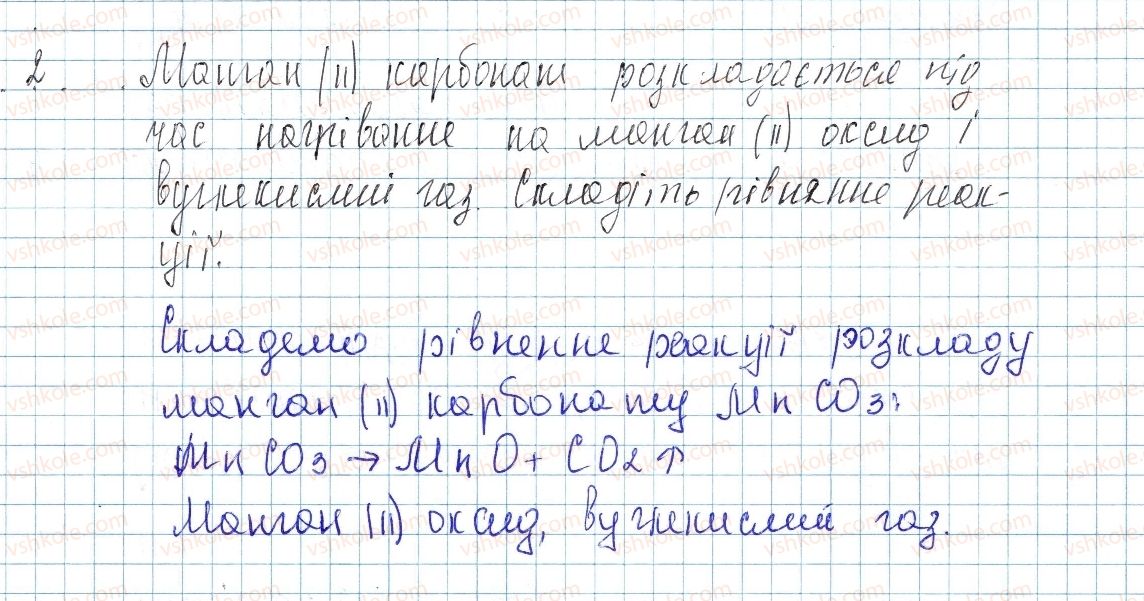 2. Манган (II) карбонат розкладається під
час нагрівання на манган (II) оксид і
вуглекислий газ. Складіть рівняння реак-
ції.
Складемо рівняння реакції розкладу
манган (II) карбонату MnCO3:
MnCO3 → MnO + CO2↑
Манган (II) оксид, вуглекислий газ.